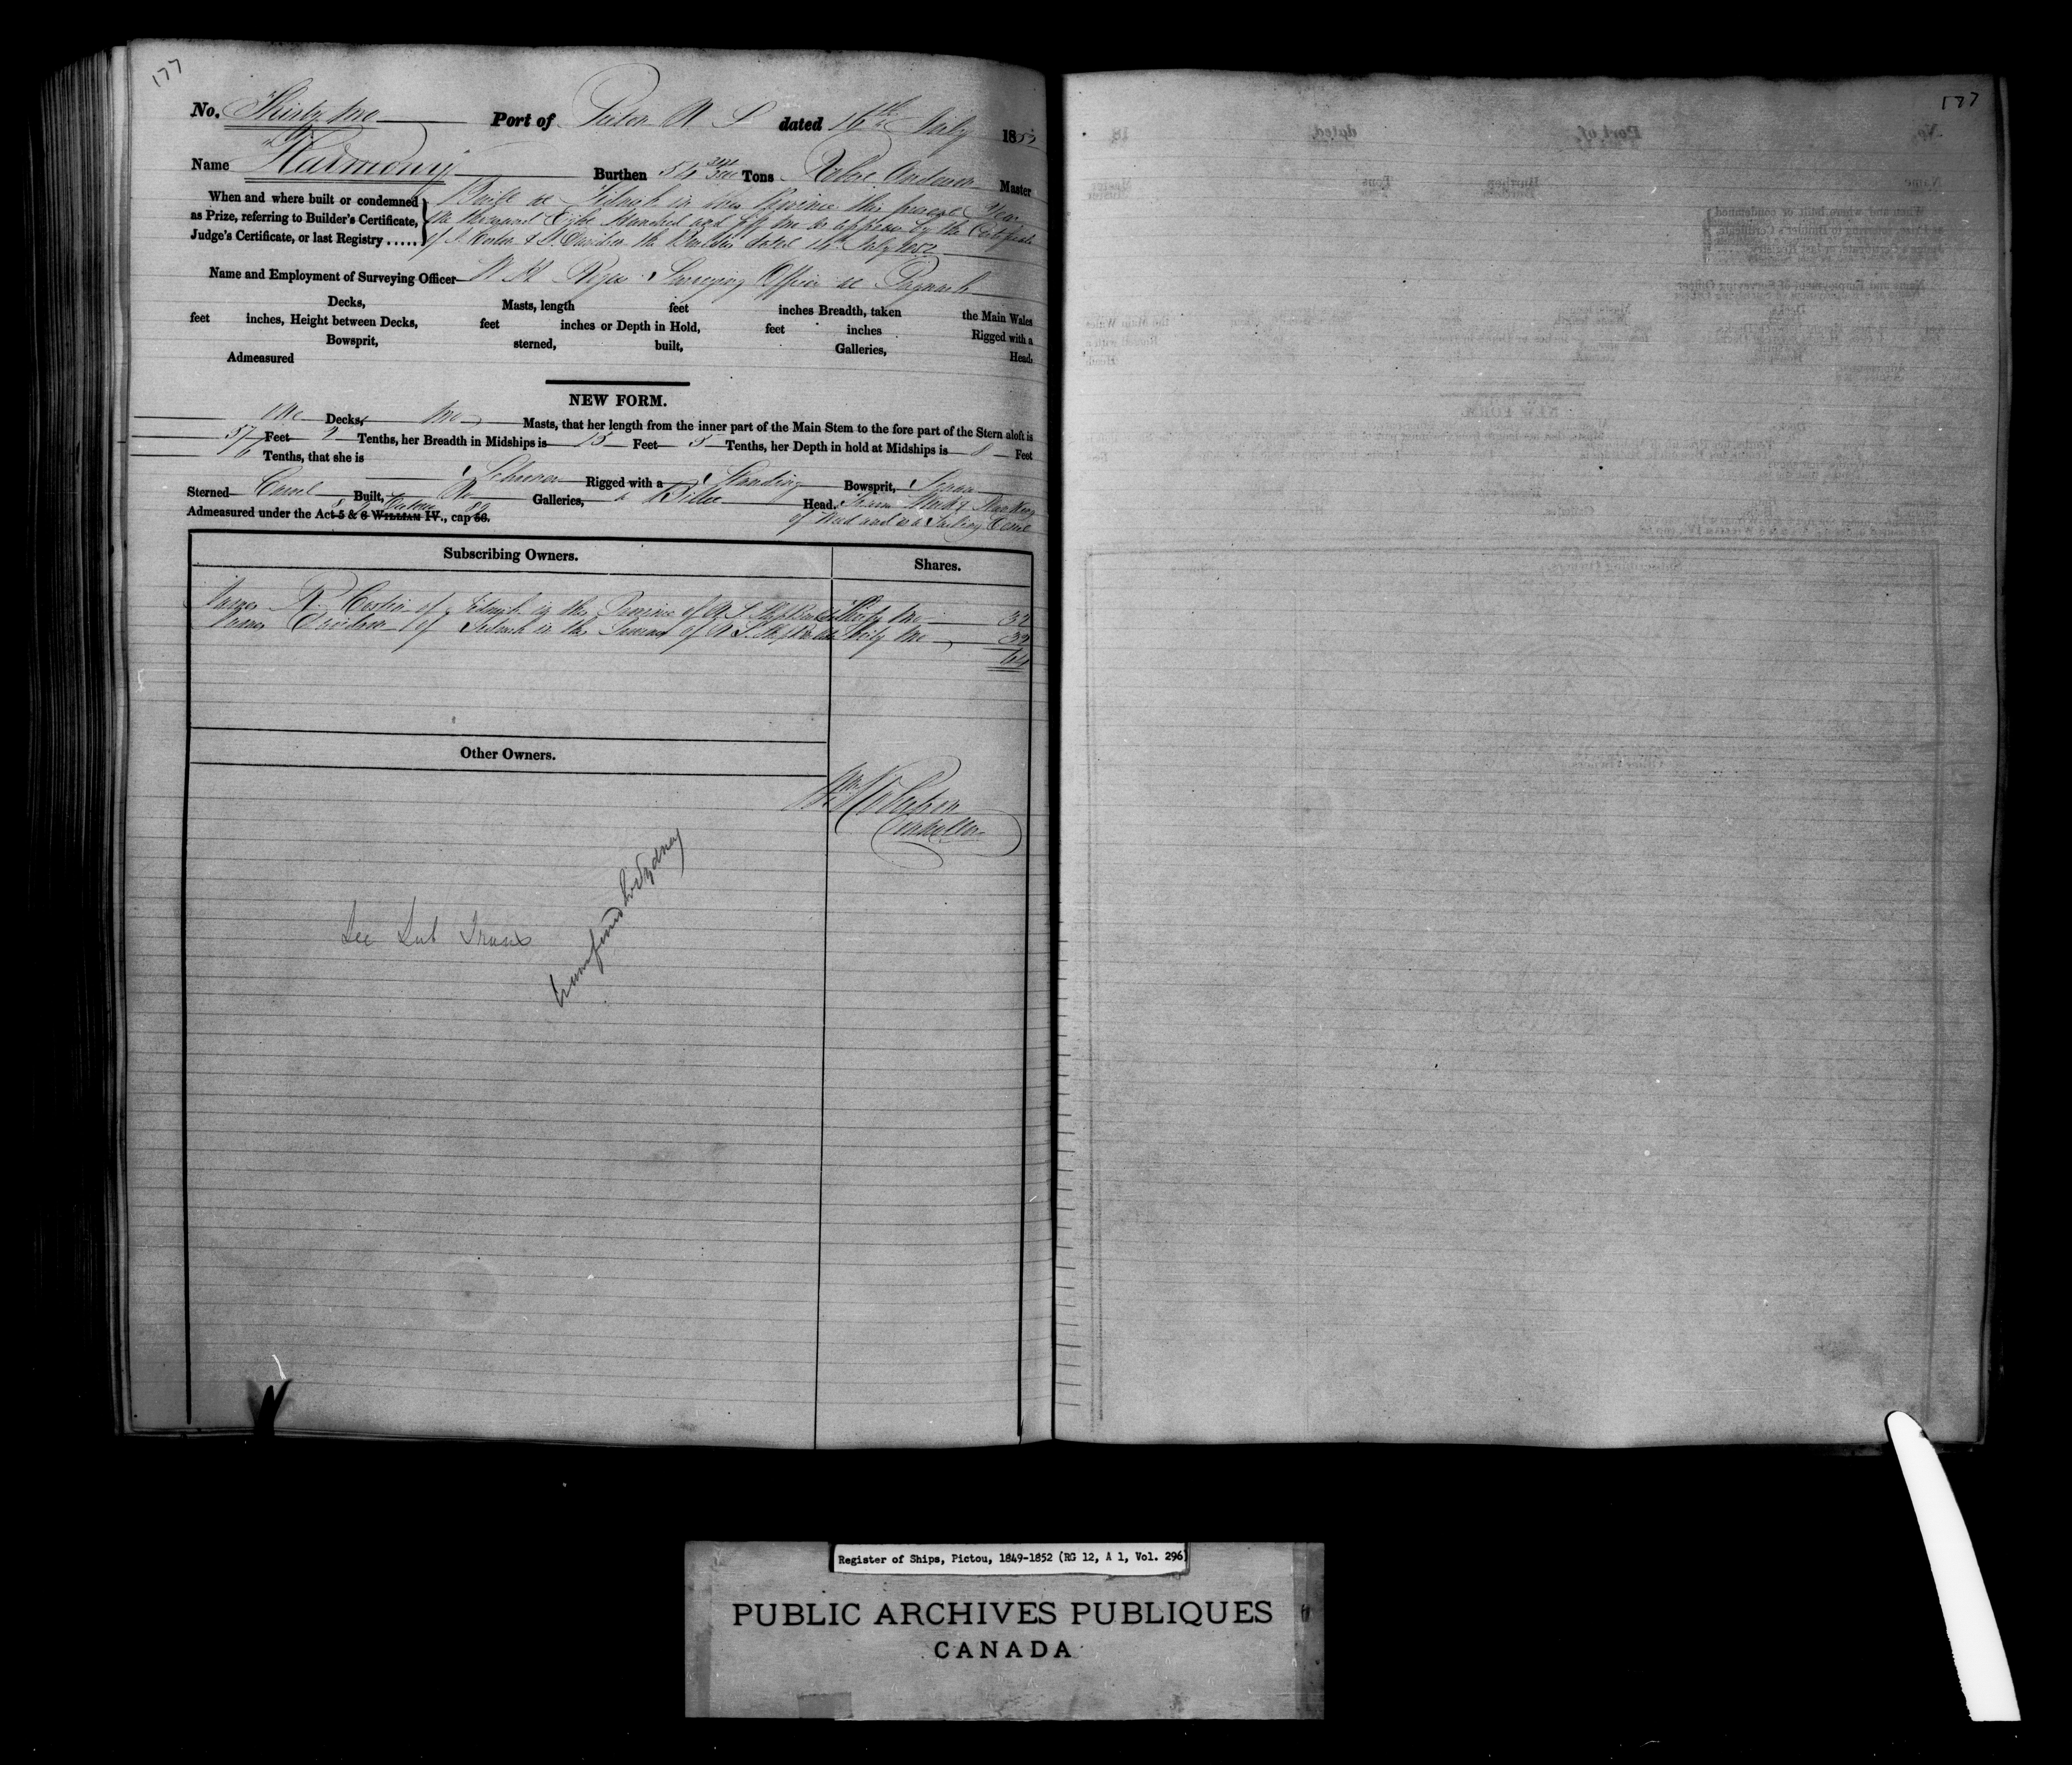 177
No. Thirty two Port of Pictou N S dated 16th July 1852
Name Harmony Burthen 54 Tons Robert Anderson Master
When and where built or condemned as Prize, referring to Builder's Certificate, Judge's Certificate, or last Registry.....
Built at Tidnish in this Province this present Year
One thousand Eight Hundred and fifty two as appears by the Certificate
of J. Costin & J. Davidson the Builders dated 14th July 1852
Name and Employment of Surveying Officer W H Surveying Officer at Pugwash
Decks, Masts, length feet inches Breadth, taken the Main Wales
feet inches, Height between Decks, feet inches or Depth in Hold, feet inches Rigged with a
Bowsprit, sterned, built, Galleries, Head.
Admeasured
NEW FORM.
One Decks, two Masts, that her length from the inner part of the Main Stem to the fore part of the Stern aloft is
57 Feet 2 Tenths, her Breadth in Midships is 15 Feet 5 Tenths, her Depth in hold at Midships is 8 Feet
6 Tenths, that she is Schooner Rigged with a Standing Bowsprit, Square
Sterned Carvel Built, No Galleries, a Billet Head.
Admeasured under the Act 5 & 6 WILLIAM IV., cap 56.
8 & 9 Victoria 89
of Wood and is a Sailing Vessel
Subscribing Owners. Shares.
James R. Costin of Tidnish in the Province of N S Ship Builder Thirty two 32
Davidson of Tidnish in the Province of N S Ship Builder Thirty two 32
64
Other Owners.
Controller
See Sub Trans
transferred to Sydney
177
Register of Ships, Pictou, 1849-1852 (RG 12, A 1, Vol. 296)
PUBLIC ARCHIVES PUBLIQUES
CANADA